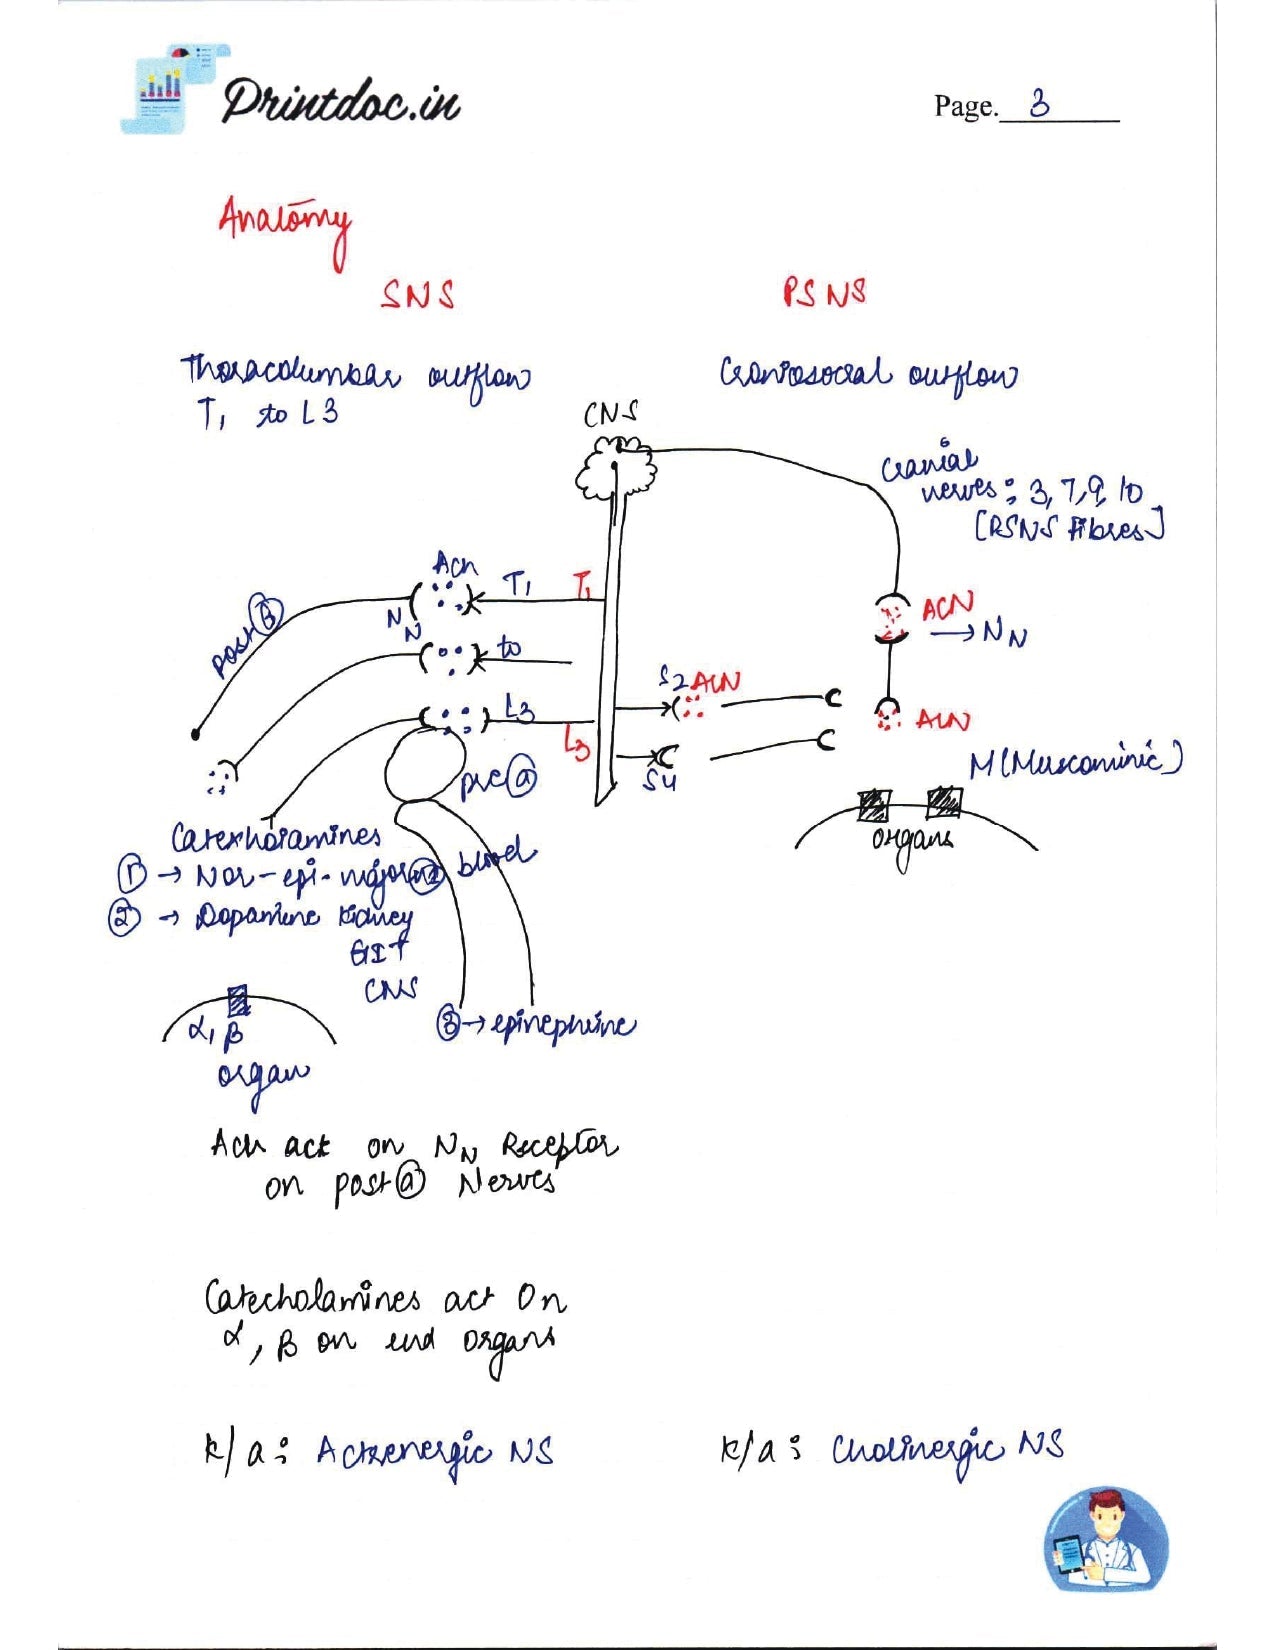 Printdoc.in
Page. 3
Anatomy
SNS
PSNS
Thoracolumbar outflow
T1 to L3
Craniosocral outflow
CNS
Cranial
nerves: 3, 7, 9, 10
[PSNS Fibres]
Ach
T1
T1
N
N
post G
to
L3
L3
pre G
S2 ACN
S4
ACN
→ NN
ACN
M (Muscarinic)
organs
Catecholamines
1 → Nor-epi-major
blood
2 → Dopamine Kidney
GIT
CNS
3 → epinephrine
α, β
organ
Ach act on NN Receptor
on post G Nerves
Catecholamines act On
α, β on end organs
k/a: Adrenergic NS
k/a: Cholinergic NS